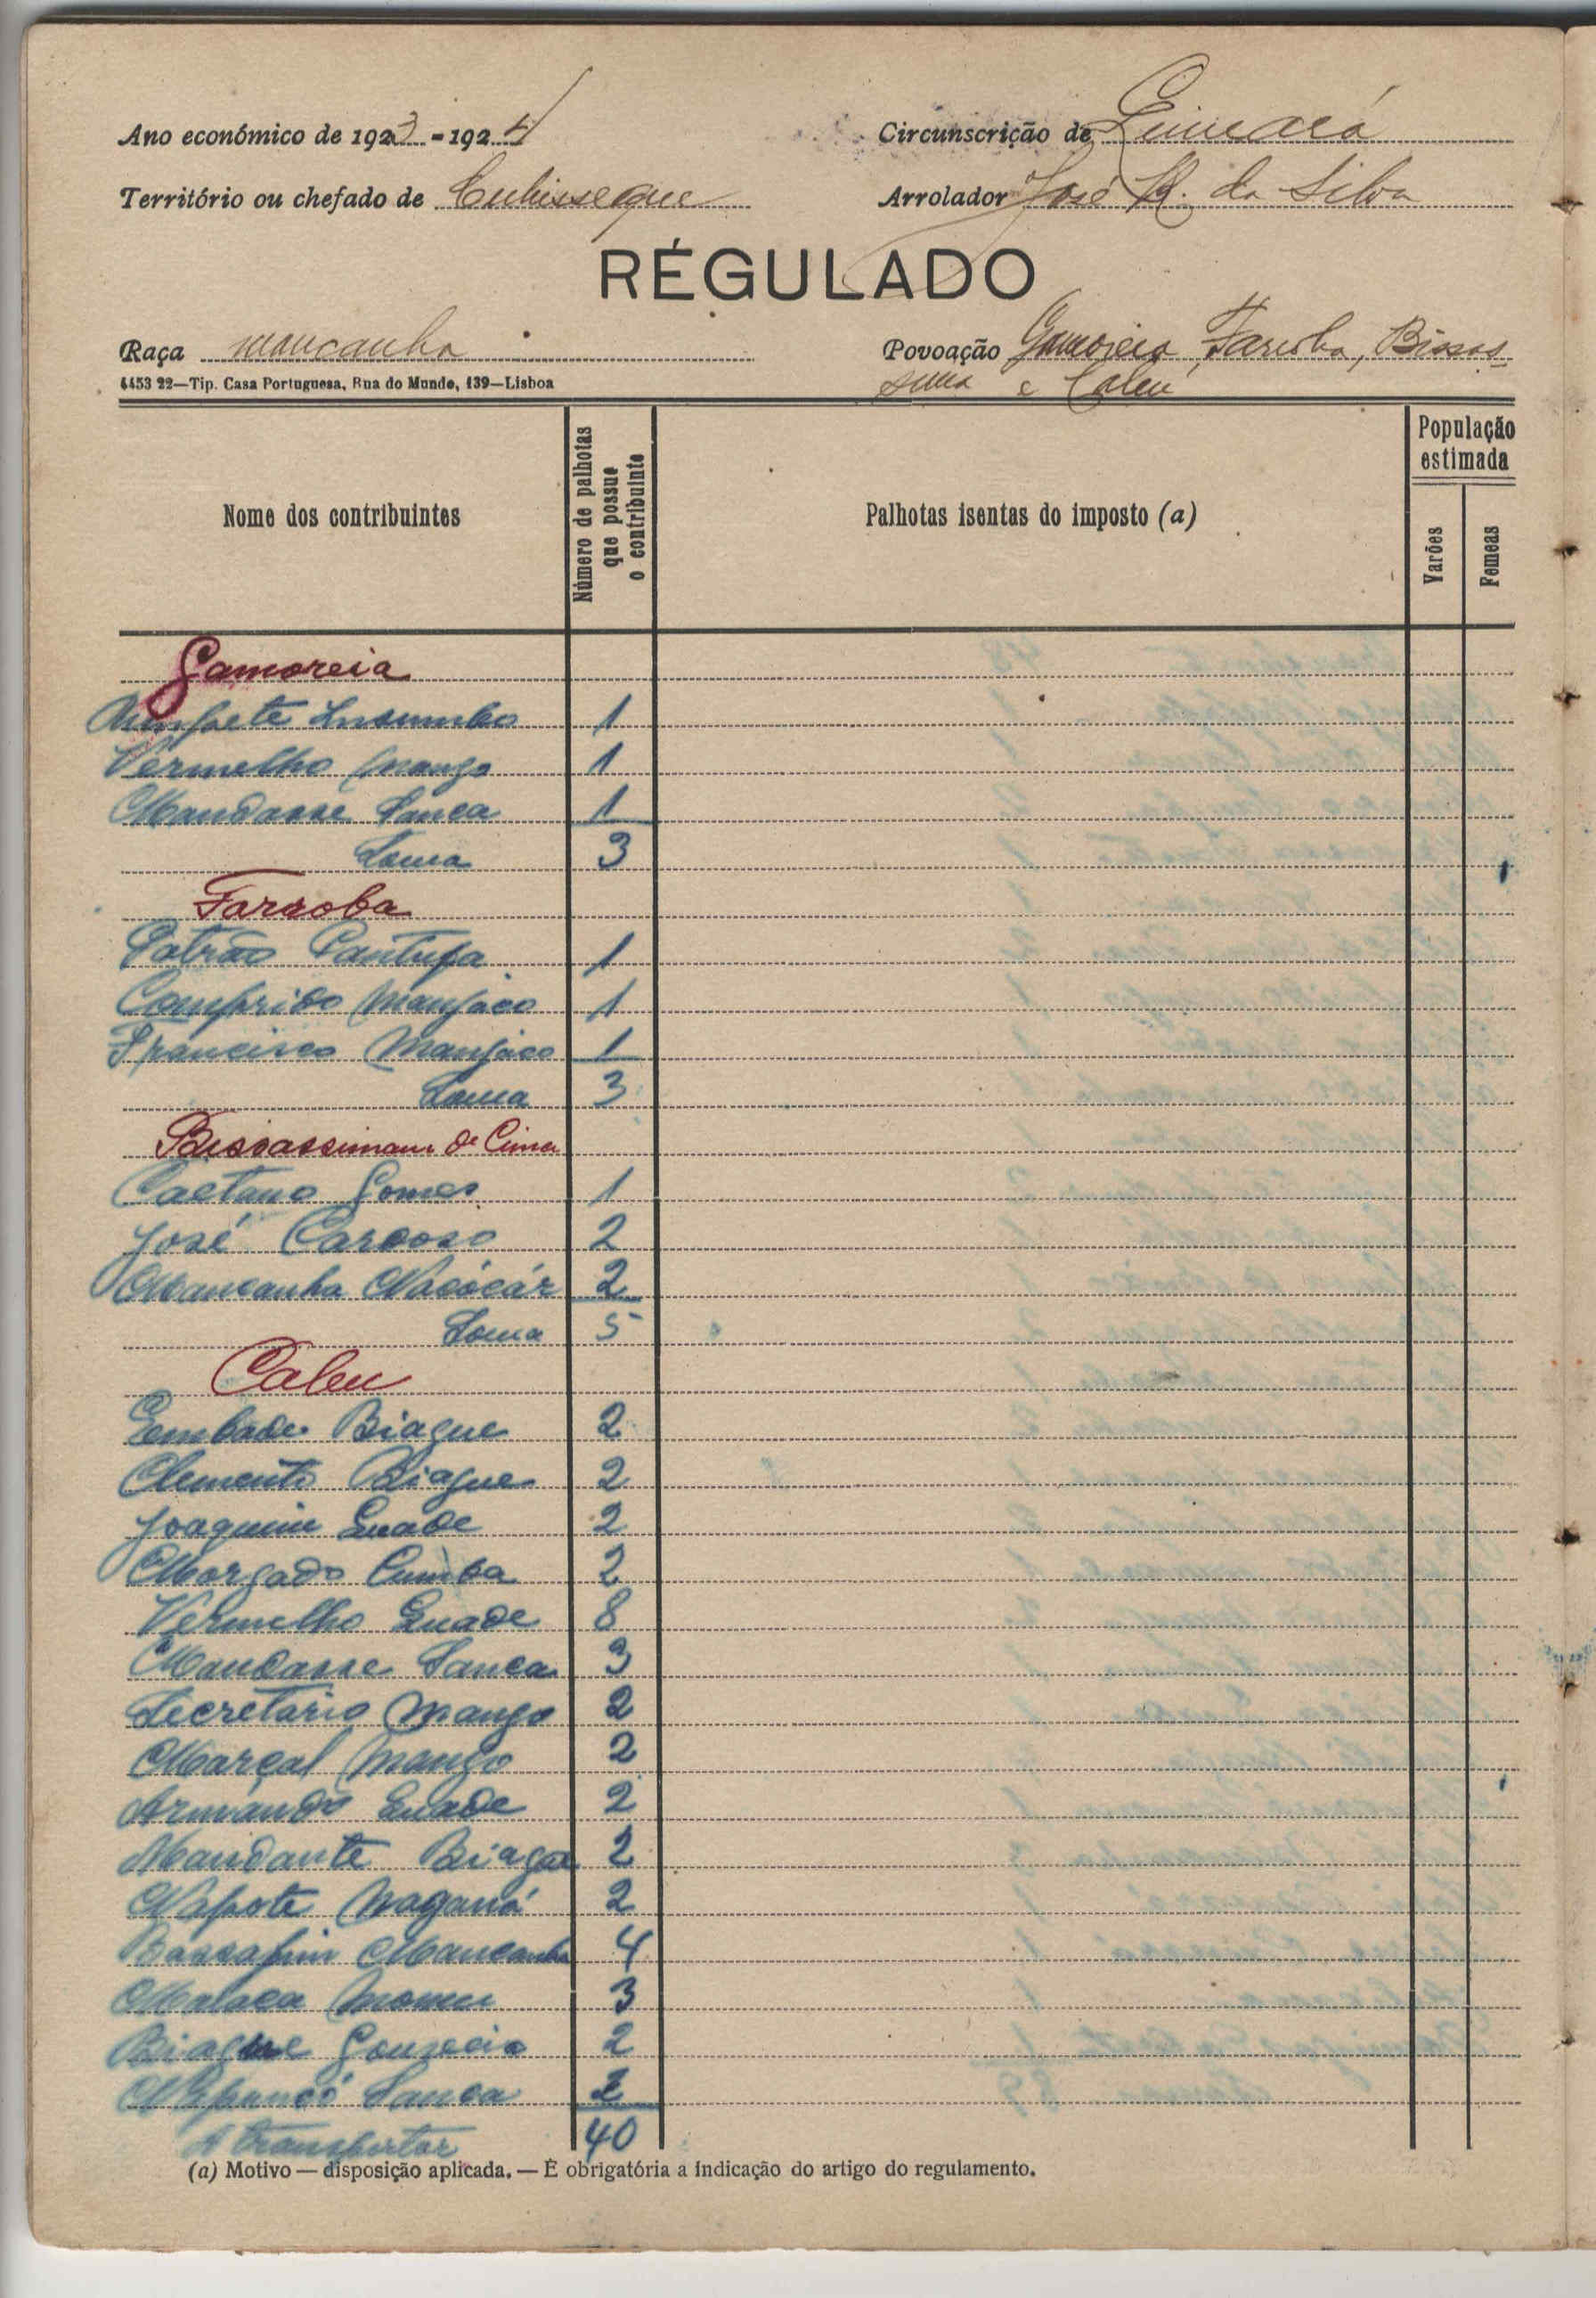 Ano económico de 1923-1924
Circunscrição de
Território ou chefado de Cubisseque
Arrolador José R. da Silva
RÉGULADO
Raça mancanha
Povoação Gamoreia, Farroba, Bissas
sima e Caleu
4453 22—Tip. Casa Portuguesa, Rua do Mundo, 139—Lisboa
Nome dos contribuintes
Número de palhotas que possue o contribuinte
Palhotas isentas do imposto (a)
População estimada
Varões
Femeas
Gamoreia
1
Vermelho Mango 1
Mandasse Sanca 1
Soma 3
Farroba
Patrão Pantufa 1
Comprido Manjaco 1
Francisco Manjaco 1
Soma 3
Bissassimam de Cima
Caetano Gomes 1
José Cardoso 2
Mancanha Nacócár 2
Soma 5
Caleu
Biague 2
Clemente Biague 2
Joaquim Quade 2
Morgado Cumba 2
Vermelho Quade 8
Mandasse Sanca 3
Secretário Mango 2
Marçal Mango 2
Armando Quade 2
Mandante Biague 2
Napote Naganá 2
Bassafim Mancanha 4
Malaca 3
Biague Gouveia 2
Sanca 2
A transportar 40
(a) Motivo — disposição aplicada. — É obrigatória a indicação do artigo do regulamento.